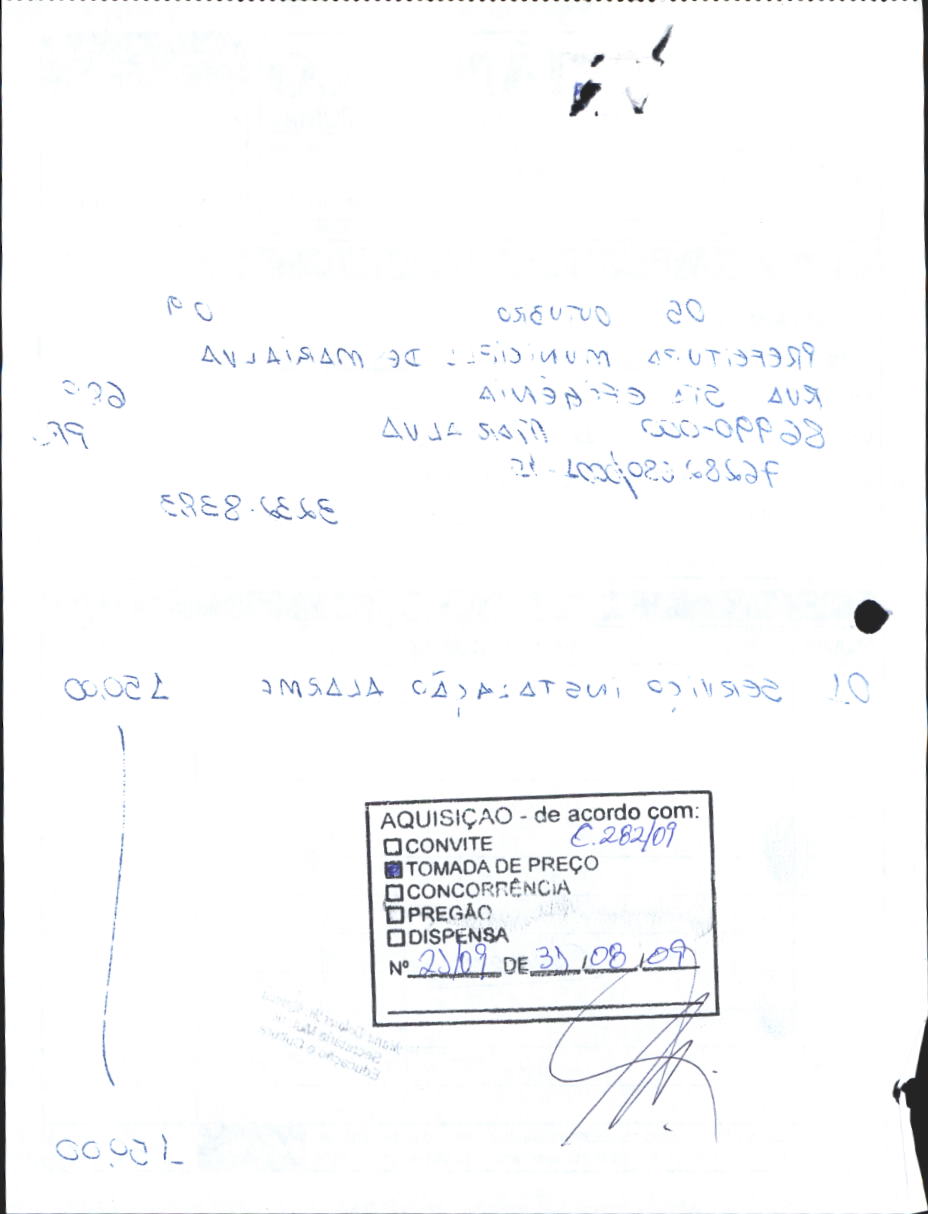 05 OUTUBRO 09
PREFEITURA MUNICIPAL DE MARIALVA
RUA STA EFIGÊNIA 680
86990-000 MARIALVA PR
3232-8383
01 SERVIÇO INSTALAÇÃO ALARME 150,00
AQUISIÇAO - de acordo com:
C.282/09
CONVITE
TOMADA DE PREÇO
CONCORRÊNCIA
PREGÃO
DISPENSA
Nº 21/09 DE 31/08/09
Secretária
Educação e Cultura
150,00